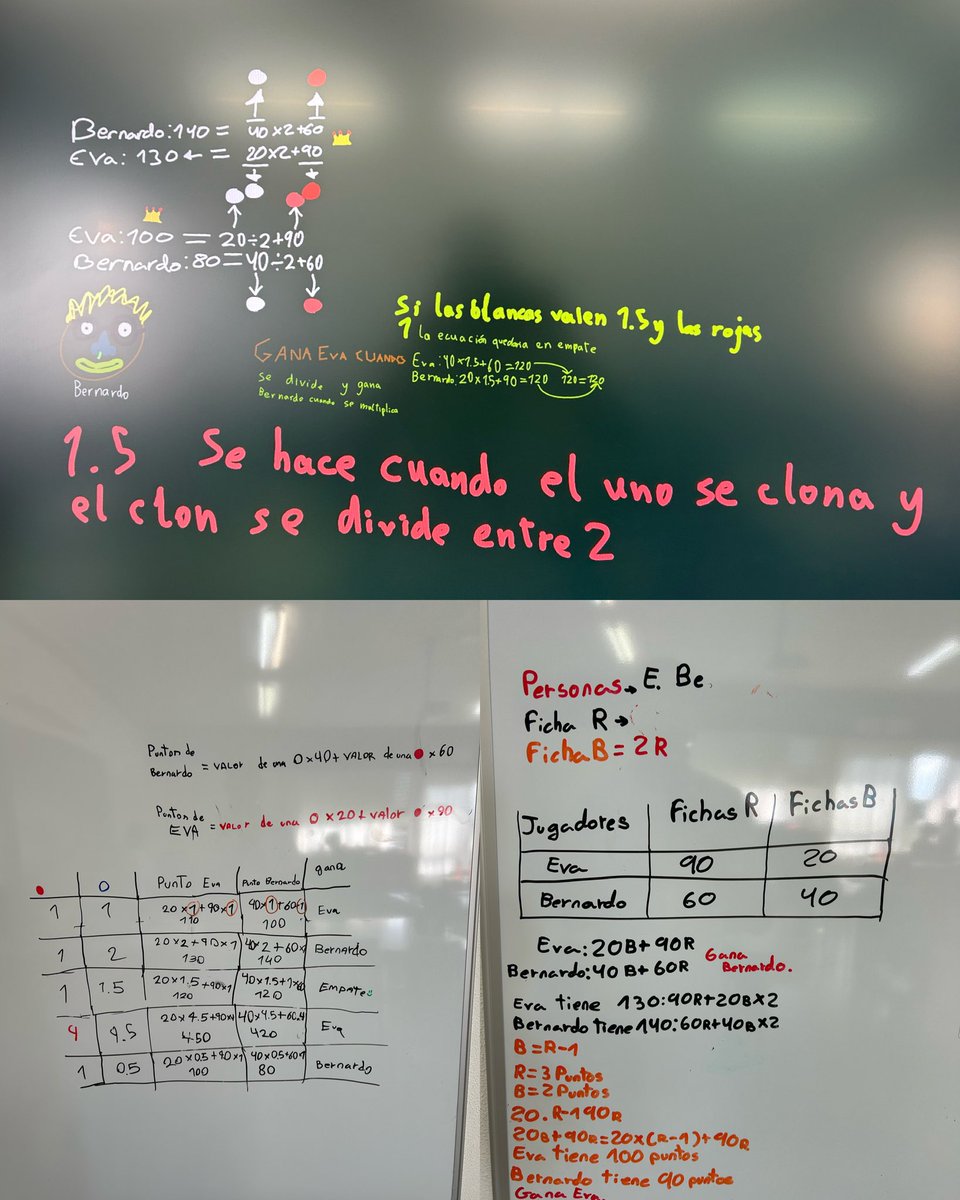 Bernardo: 140 = 40 x 2 + 60
Eva: 130 ← = 20 x 2 + 90
Eva: 100 = 20 ÷ 2 + 90
Bernardo: 80 = 40 ÷ 2 + 60
Bernardo
Si las blancas valen 1.5 y las rojas
1 la ecuación quedaria en empate
Eva: 40 x 1.5 + 60 = 120
Bernardo: 20 x 1.5 + 90 = 120 120 = 120
GANA EVA CUANDO
se divide y gana
Bernardo cuando se multiplica
1.5 Se hace cuando el uno se clona y
el clon se divide entre 2
Puntos de
Bernardo = VALOR de una O x 40 + VALOR de una ● x 60
Puntos de
EVA = VALOR de una O x 20 + valor ● x 90
● O PUNTO Eva Punto Bernardo gana
1 1 20 x 1 + 90 x 1 40 x 1 + 60 x 1 Eva
110 100
1 2 20 x 2 + 90 x 1 40 x 2 + 60 x Bernardo
130 140
1 1.5 20 x 1.5 + 90 x 1 40 x 1.5 + 1 x 60 Empate
120 120
4 4.5 20 x 4.5 + 90 x 4 40 x 4.5 + 60 x 4 Eva
450 420
1 0.5 20 x 0.5 + 90 x 1 40 x 0.5 + 60 x 1 Bernardo
100 80
Personas → E. Be.
Ficha R →
Ficha B = 2 R
Jugadores Fichas R Fichas B
Eva 90 20
Bernardo 60 40
Eva: 20B + 90R
Bernardo: 40B + 60R
Gana
Bernardo.
Eva tiene 130: 90R + 20B x 2
Bernardo tiene 140: 60R + 40B x 2
B = R - 1
R = 3 Puntos
B = 2 Puntos
20. R - 1 90R
20B + 90R = 20 x (R - 1) + 90R
Eva tiene 100 puntos
Bernardo tiene 90 puntos
Gana Eva